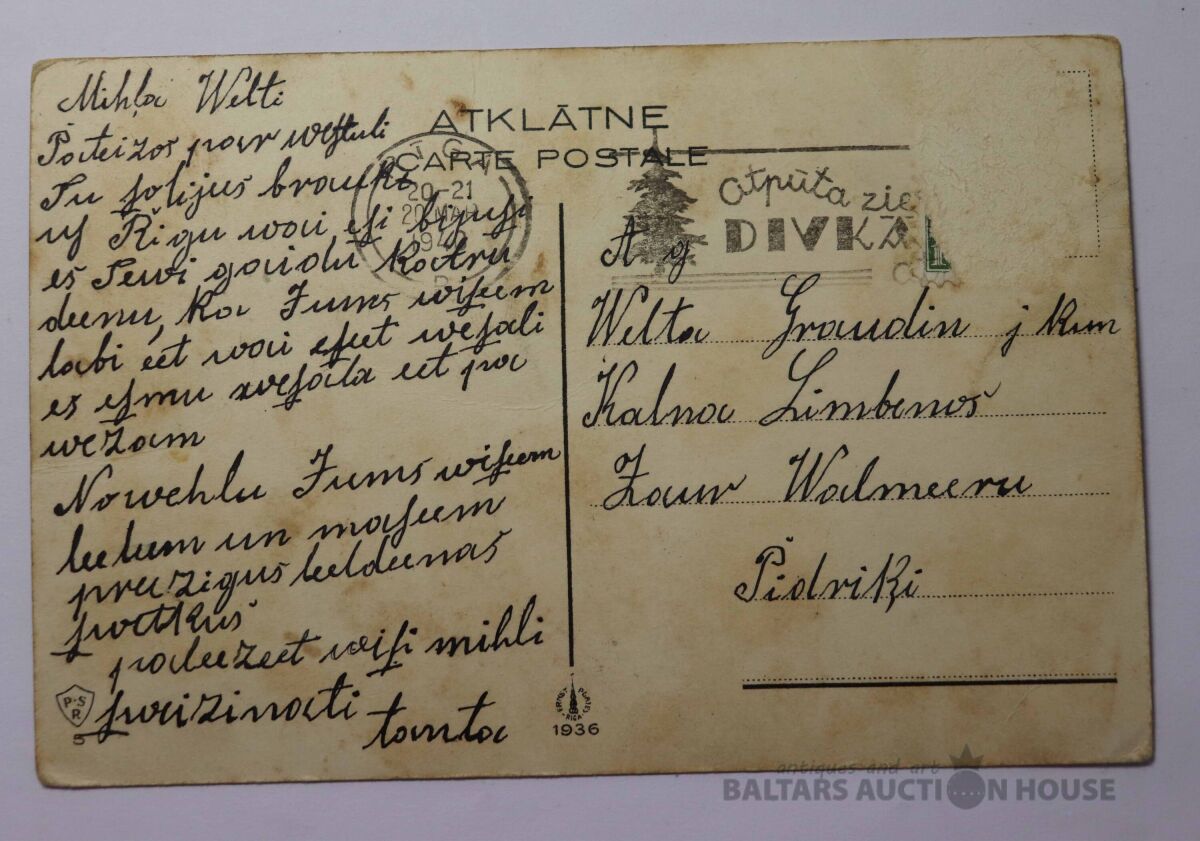 Mihļa Welti
Pateizos par westuli
Tu solijus braukt
us Rigu wai esi bijusi
es Tewi gaidu katru
deenu, ka Jums wiseem
labi eet wai eseet wesali
es esmu wesala eet pa
wežam
Nowehlu Jums wiseem
leelem un maseem
preezigus leeldeenas
swetkus
paleezeet wisi mihli
sweizinati
tanta
P.S.R
5
ATKLĀTNE
CARTE POSTALE
20-21
20 MAR
1940
Atpūta zie
DIVKĀ
A g
Welta Graudin j kun
Kalna Limbenos
Zaur Walmeeru
Pidriķi
RIGA
1936
antiques and art
BALTARS AUCTION HOUSE